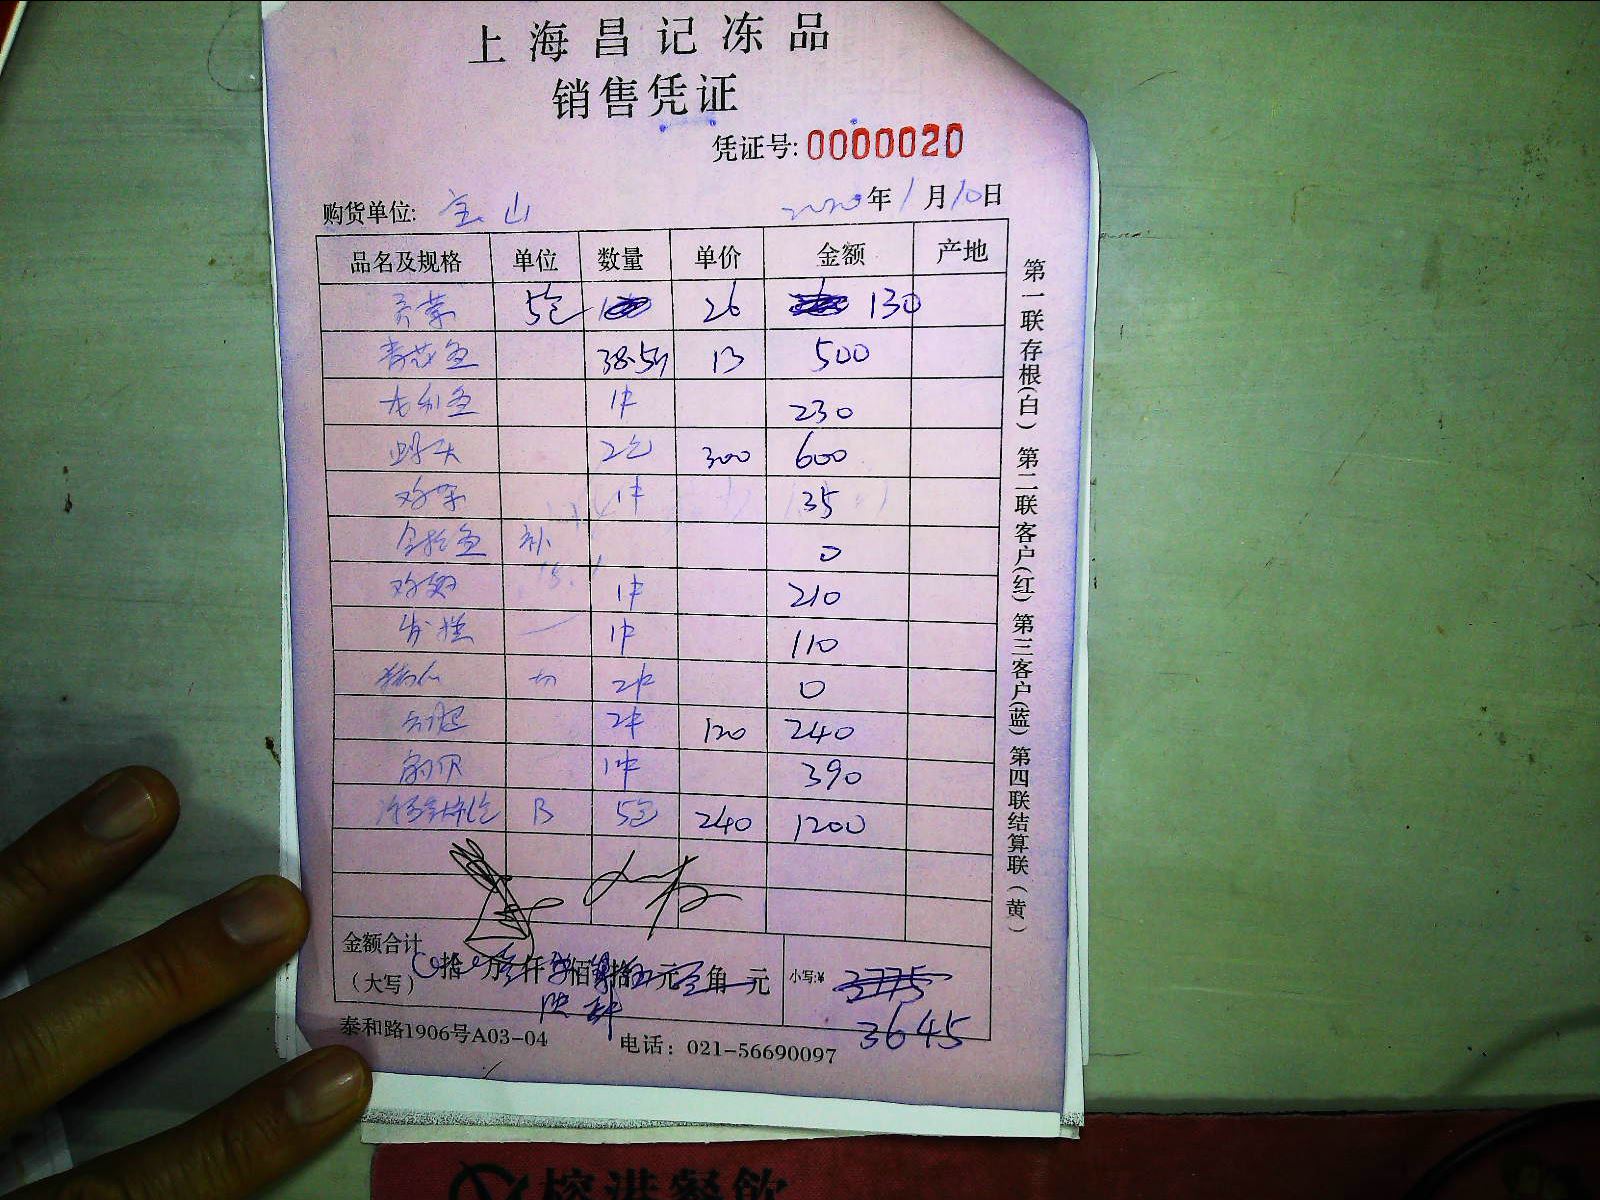 上海昌记冻品
销售凭证
凭证号: 0000020
购货单位: 宝山 2020年1月10日
品名及规格 单位 数量 单价 金额 产地
贡菜 5包 26 130
青花鱼 38.5斤 13 500
龙利鱼 1件 230
2包 300 600
1件 35
补 0
鸡翅 1件 210
1件 110
2件 0
2件 120 240
1件 390
B 5包 240 1200
金额合计
(大写) 拾 万 仟 佰 拾 元 角 元 小写:¥ 3775
3645
泰和路1906号A03-04 电话: 021-56690097
第一联存根(白) 第二联客户(红) 第三客户(蓝) 第四联结算联(黄)
榕港餐飲